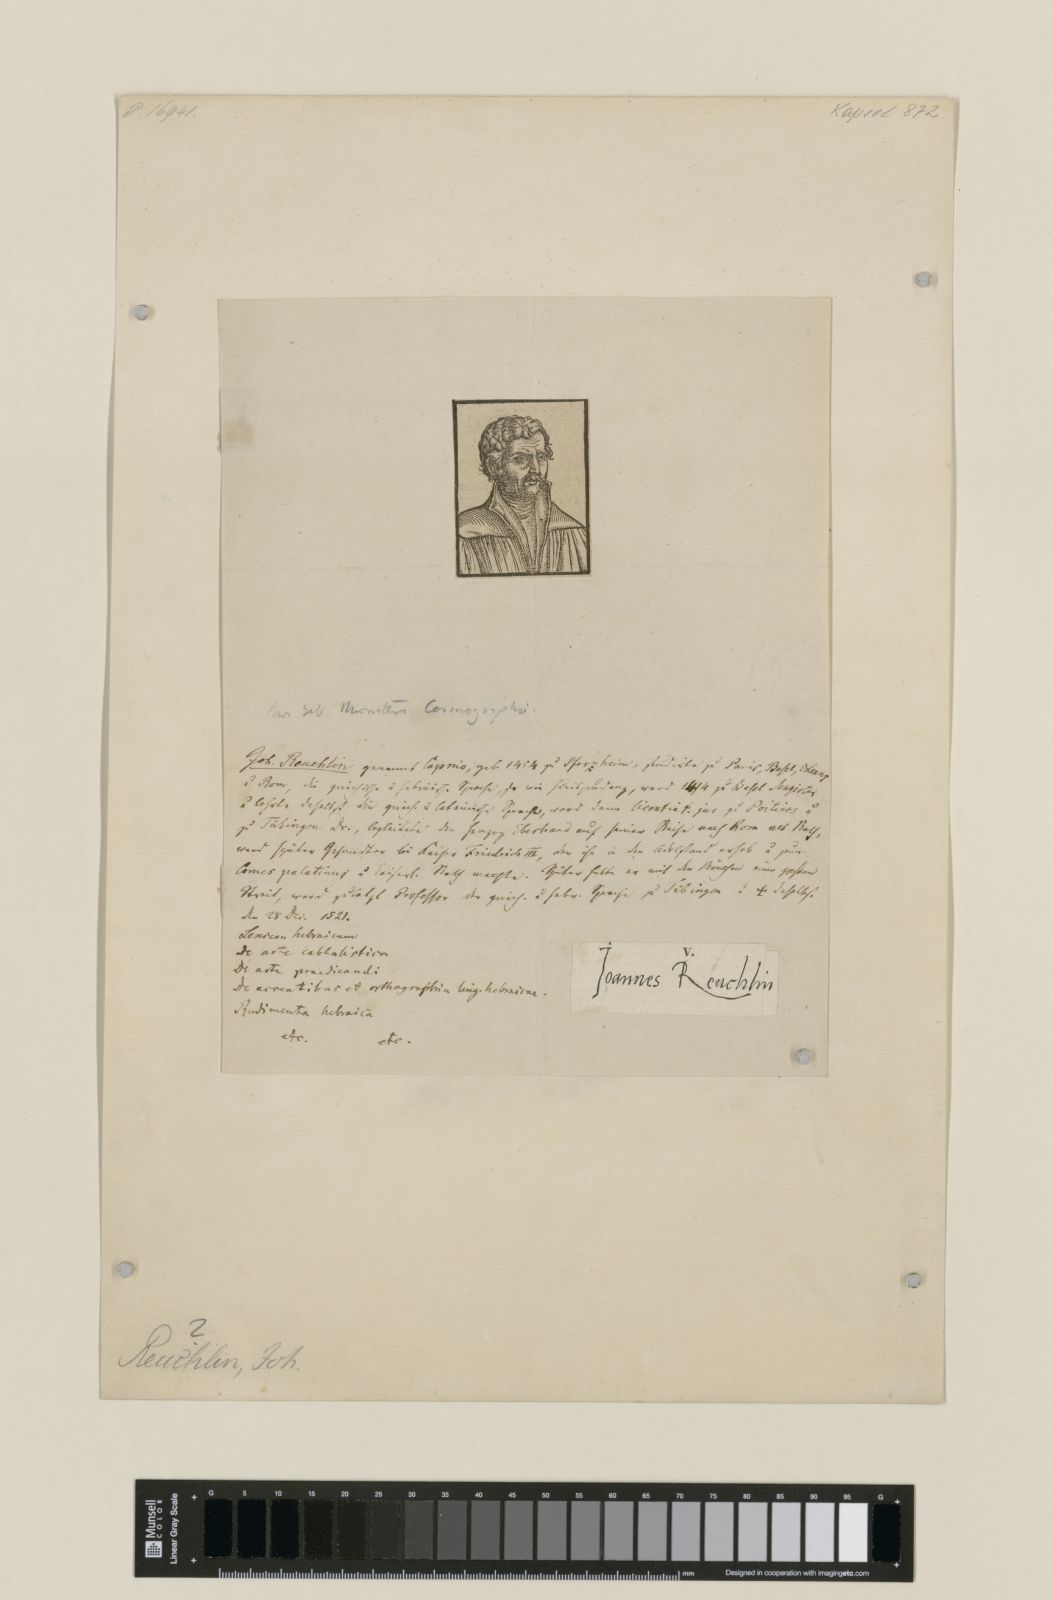 P. 16941.
Kapsel 872
Aus Seb. Munsters Cosmographie.
Joh. Reuchlin genannt Capnio, geb. 1454 zu Pforzheim, studirte zu Paris, Basel, Orleans
u Rom, die griechische u hebräische Sprache, so wie Jurisprudenz, ward 1474 zu Basel Magister
u lehrte daselbst die griech. u lateinische Sprache, ward dann Licentiat. jur. zu Poitiers u
zu Tübingen Dr., begleitete den Herzog Eberhard auf seiner Reise nach Rom als Rath,
ward später Gesandter bei Kaiser Friedrich III, der ihn in den Adelstand erhob u zum
Comes palatinus u Kaiserl. Rath machte. Später hatte er mit den Mönchen einen großen
Streit, ward zuletzt Professor der griech. u hebr. Sprache zu Tübingen u † daselbst
den 28 Dec. 1521.
Lexicon hebraicum
De arte cabbalistica
De arte praedicandi
De accentibus et orthographia ling. hebraicae.
Rudimenta hebraica
etc. etc.
v.
Joannes Reuchlin
?
Reuchlin, Joh.
Munsell
COLOR
Linear Gray Scale
G 5 10 15 20 25 30 35 40 45 50 55 60 65 70 75 80 85 90 95 G
mm
Designed in cooperation with imagingetc.com